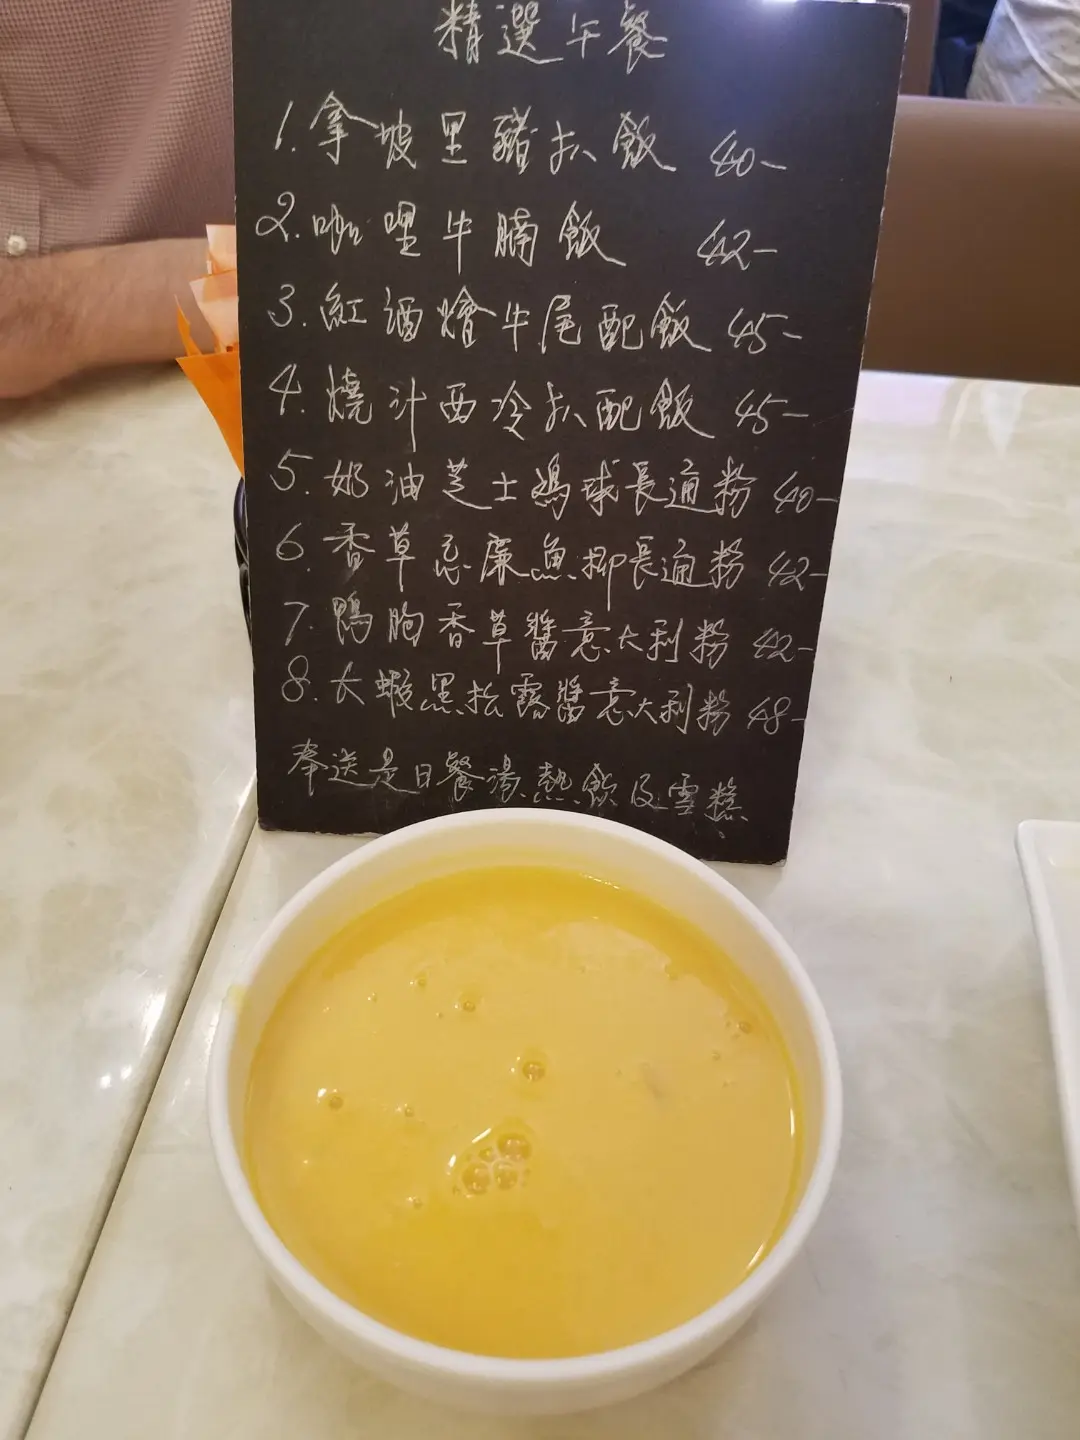 精選午餐
1. 拿坡里豬扒飯 40-
2. 咖哩牛腩飯 42-
3. 紅酒燴牛尾配飯 45-
4. 燒汁西冷扒配飯 45-
5. 奶油芝士鷄球長通粉 40-
6. 香草忌廉魚柳長通粉 42-
7. 鴨胸香草醬意大利粉 42-
8. 大蝦黑松露醬意大利粉 48-
奉送是日餐湯熱飲及雪糕